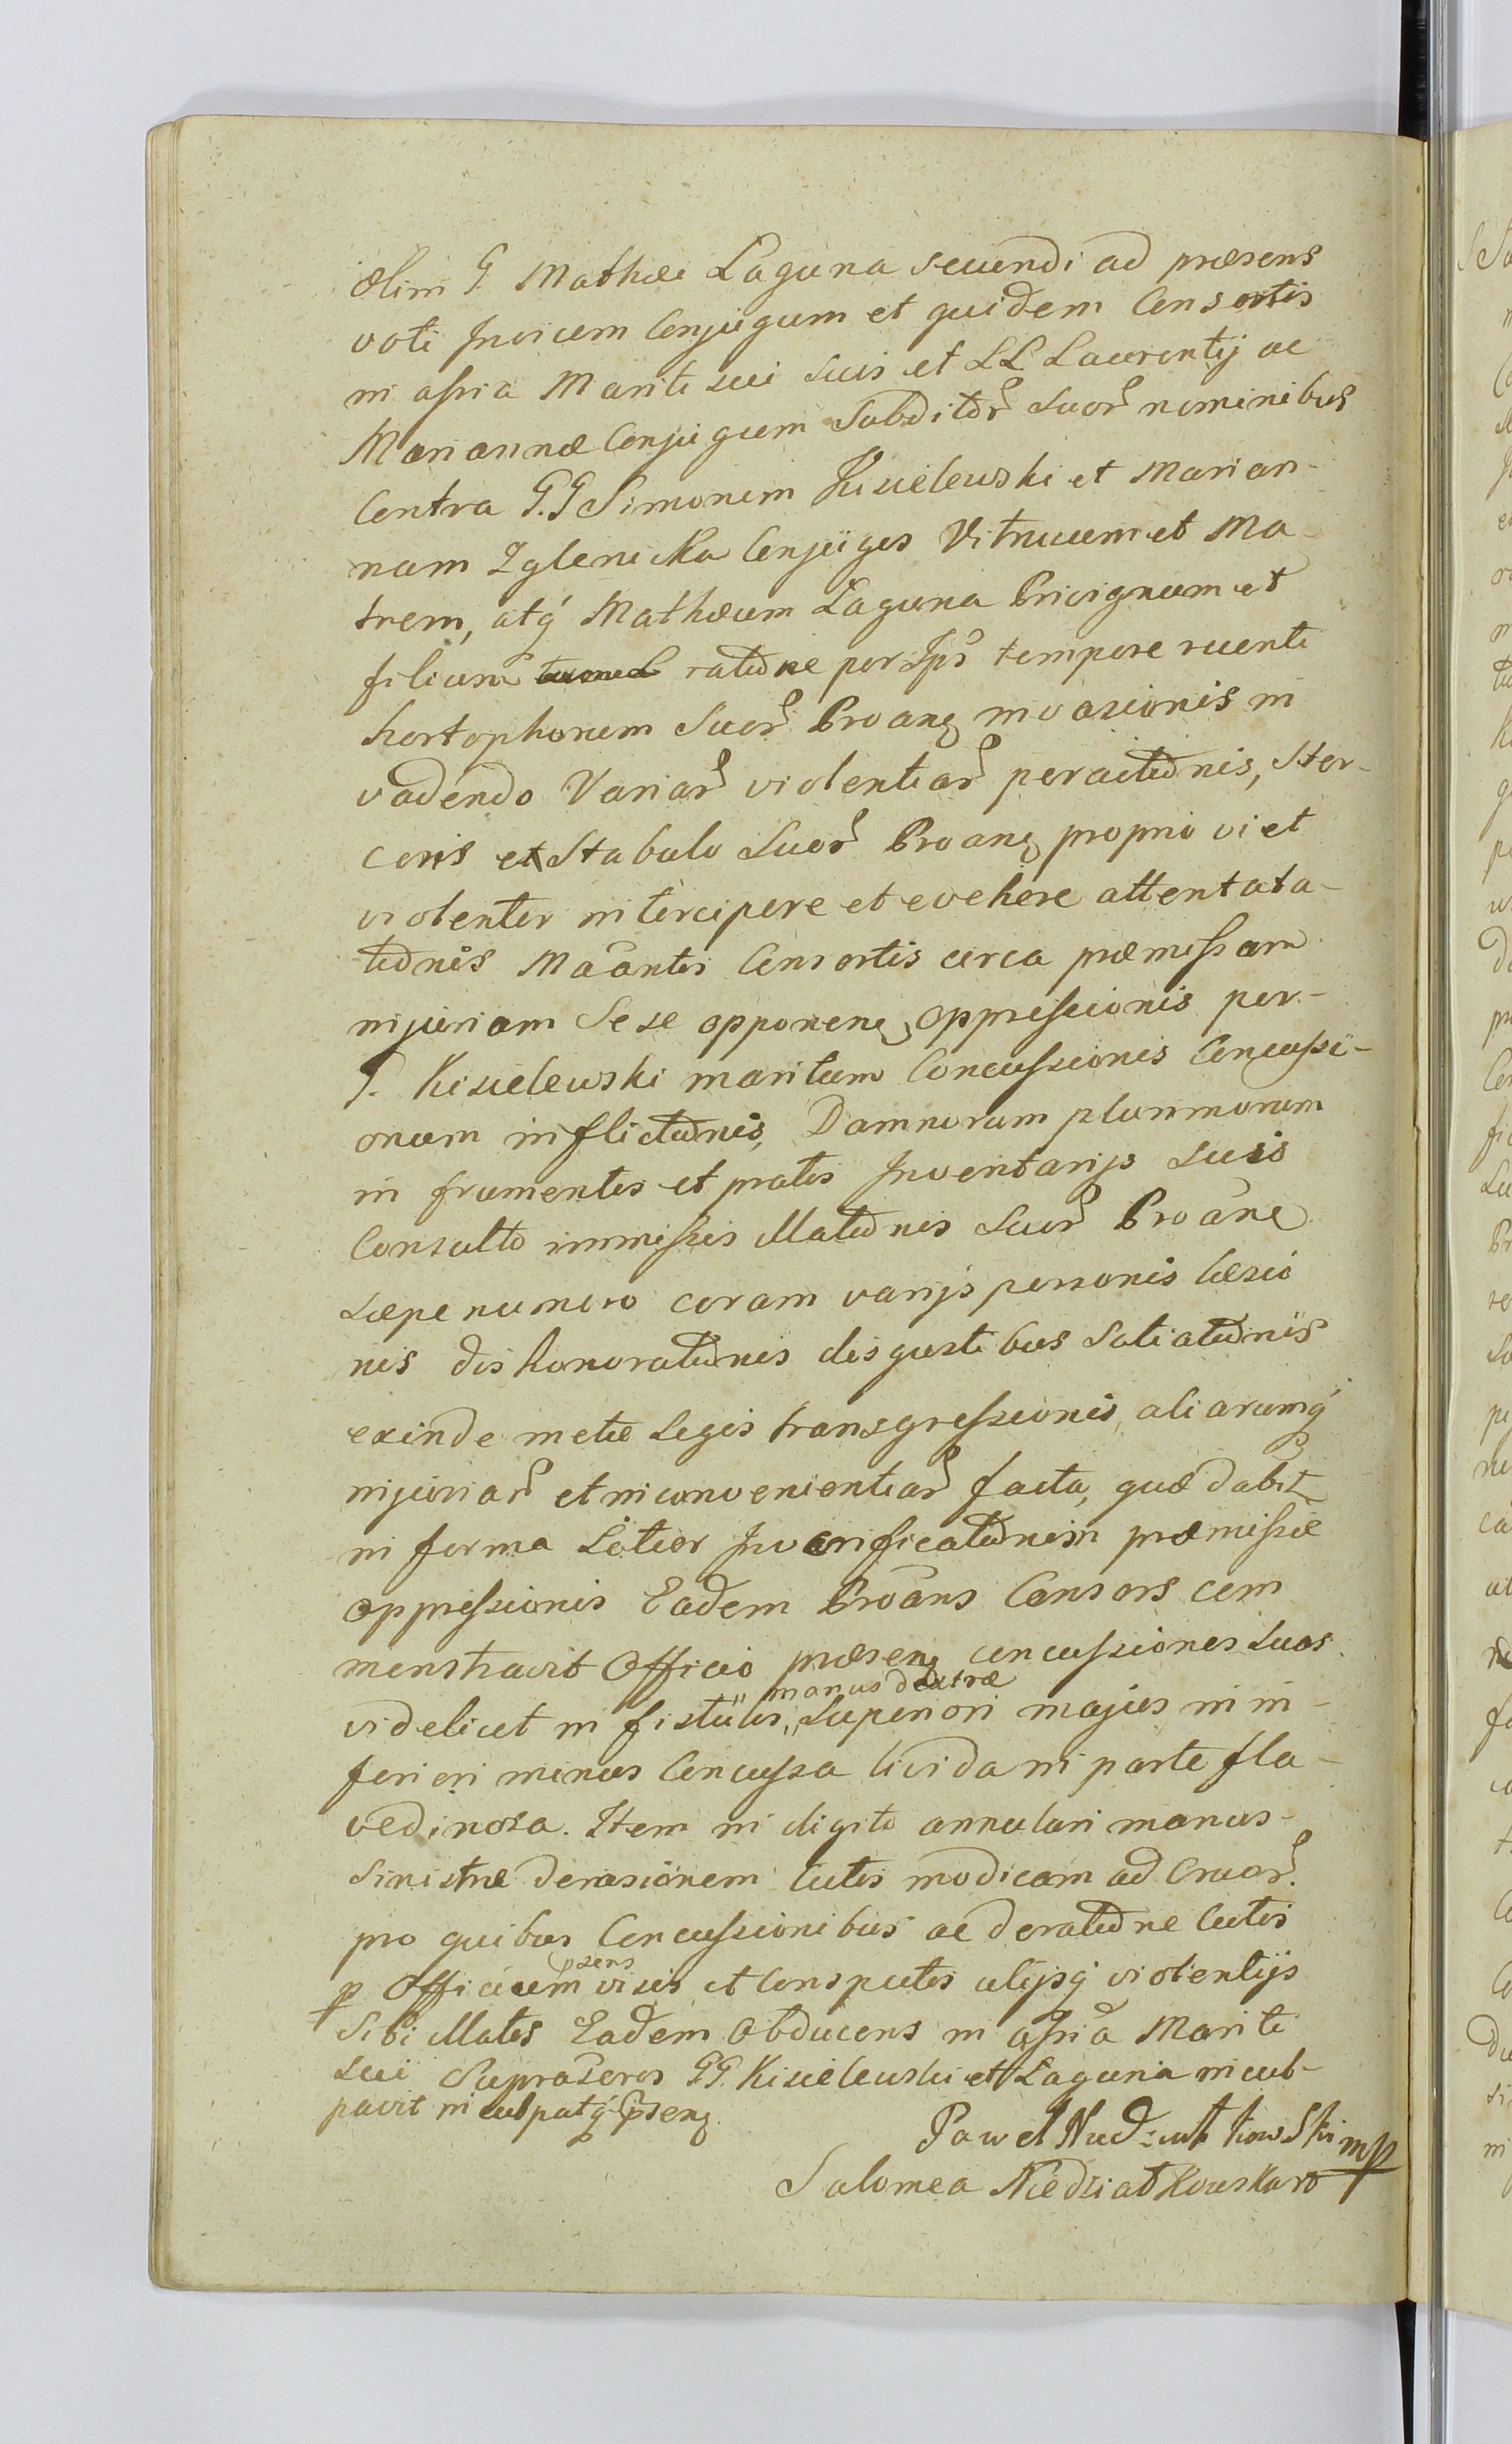 olim G. Mathæi Laguna secundi ad præsens
voti Invicem Conjugum et quidem Consortis
in assña Mariti sui suis et LL Laurentij ac
Mariannæ Conjugum Subditor̃ Suor̃ nominibus
Contra G.G Simonem Kisielewski et Marian-
nam Zglenicka Conjuges Vitricum et Ma-
trem, atq́ Mathæum Laguna Privignum et
filium ratiõne per Ips̃ tempore ruenti
hortophorum Suor̃ Proanq invasionis in
vadendo Variar̃ violentiar̃ peractiõnis, Ster-
coris ex Stabulo Suor̃ Proanq proprio vi et
violenter intercipere et evehere attentata-
tiõnis Mãantis Consortis circa præmissam
injuriam Sese opponenq oppressionis per-
G. Kisielewski maritum Concussionis Concussi-
onum inflictiõnis, Damnorum plurimorum
in frumentis et pratis Inventarijs suis
Consulto immissis illatiõnis Suor̃ Proãne
sæpe numero coram varijs personis læsio
nis dishonoratiõnis disgustibus satiatiõnis
exinde metæ legis transgressionis, aliarumq́
injuriar̃ et inconvenientiar̃ facta, quæ dabit
in forma Lõtior Inverificatiõnem præmissæ
oppressionis Eadem Proãns Consors com
menstravit Officio præsenq concussiones suas
manus dextræ
videlicet in fistulis, superiori majus in in-
feriori minus Concussa livida in parte fla-
vedinosa. Item in digito annulari manus
Sinistræ derasionem Cutis modicam ad Cruor̃.
pro quibus Concussionibus ac deratiõne Cutis
psens
p Officium visis et Conspectis alijsq́ violentijs
Sibi illatis Eadem Obducens in assñã Mariti
sui Suprascros GG. Kisielewski et Laguna incul-
pavit inculpatq́ psenq.
Pawel Niedziałkowski mp
Salomea Niedziatkowska